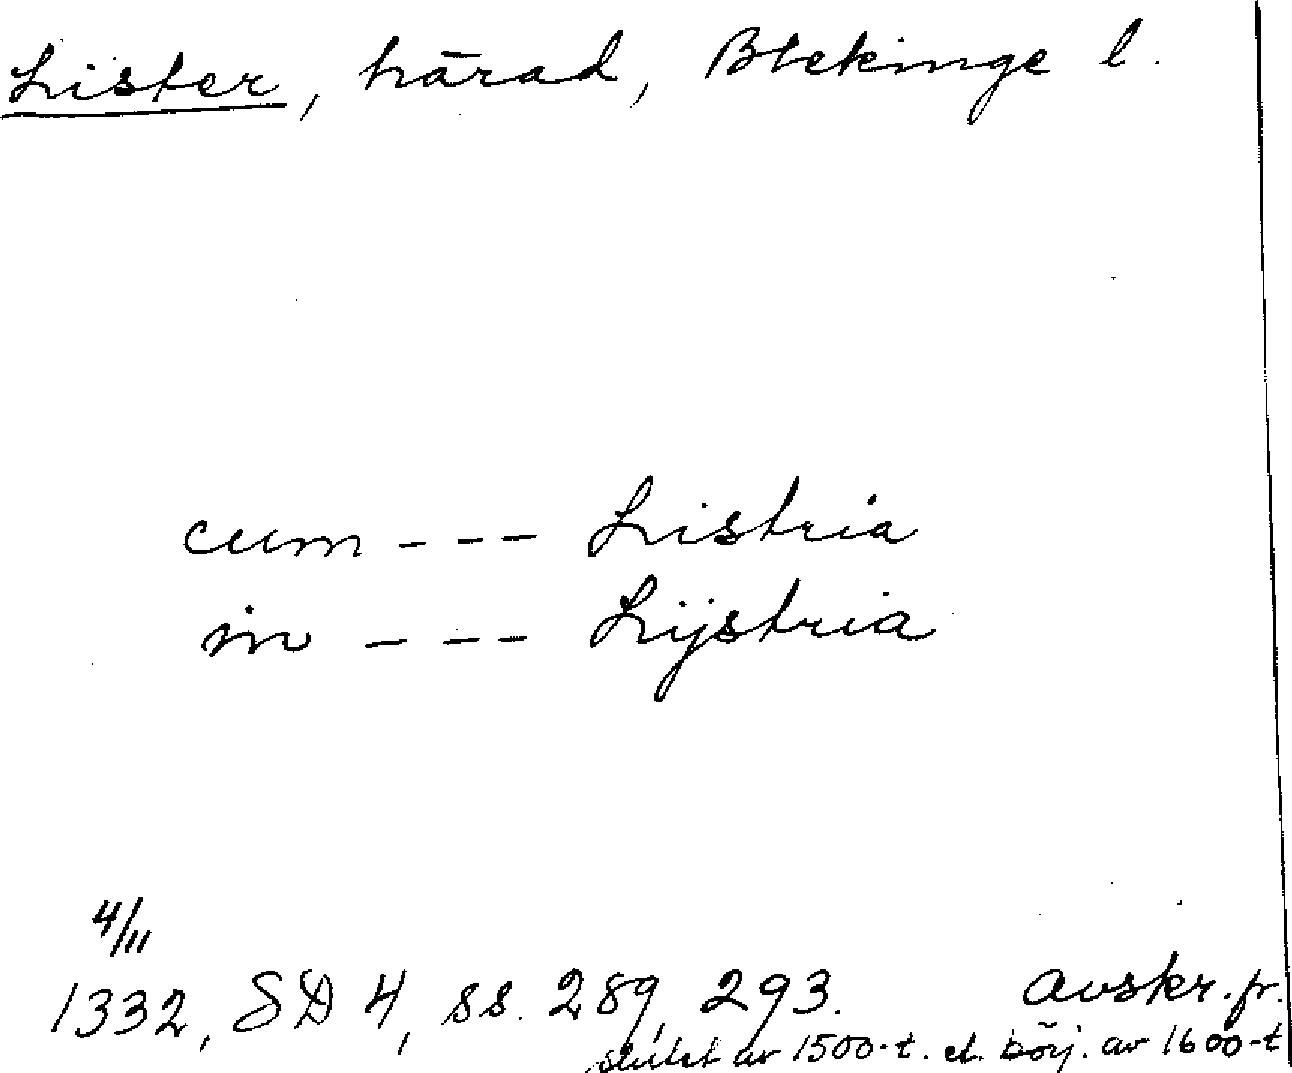 Lister, härad, Blekinge l.
cum - - - Listria
in - - - Lijstria
4/11
1332, SD 4, ss. 289, 293. avskr. fr.
slutet av 1500-t. el. börj. av 1600-t